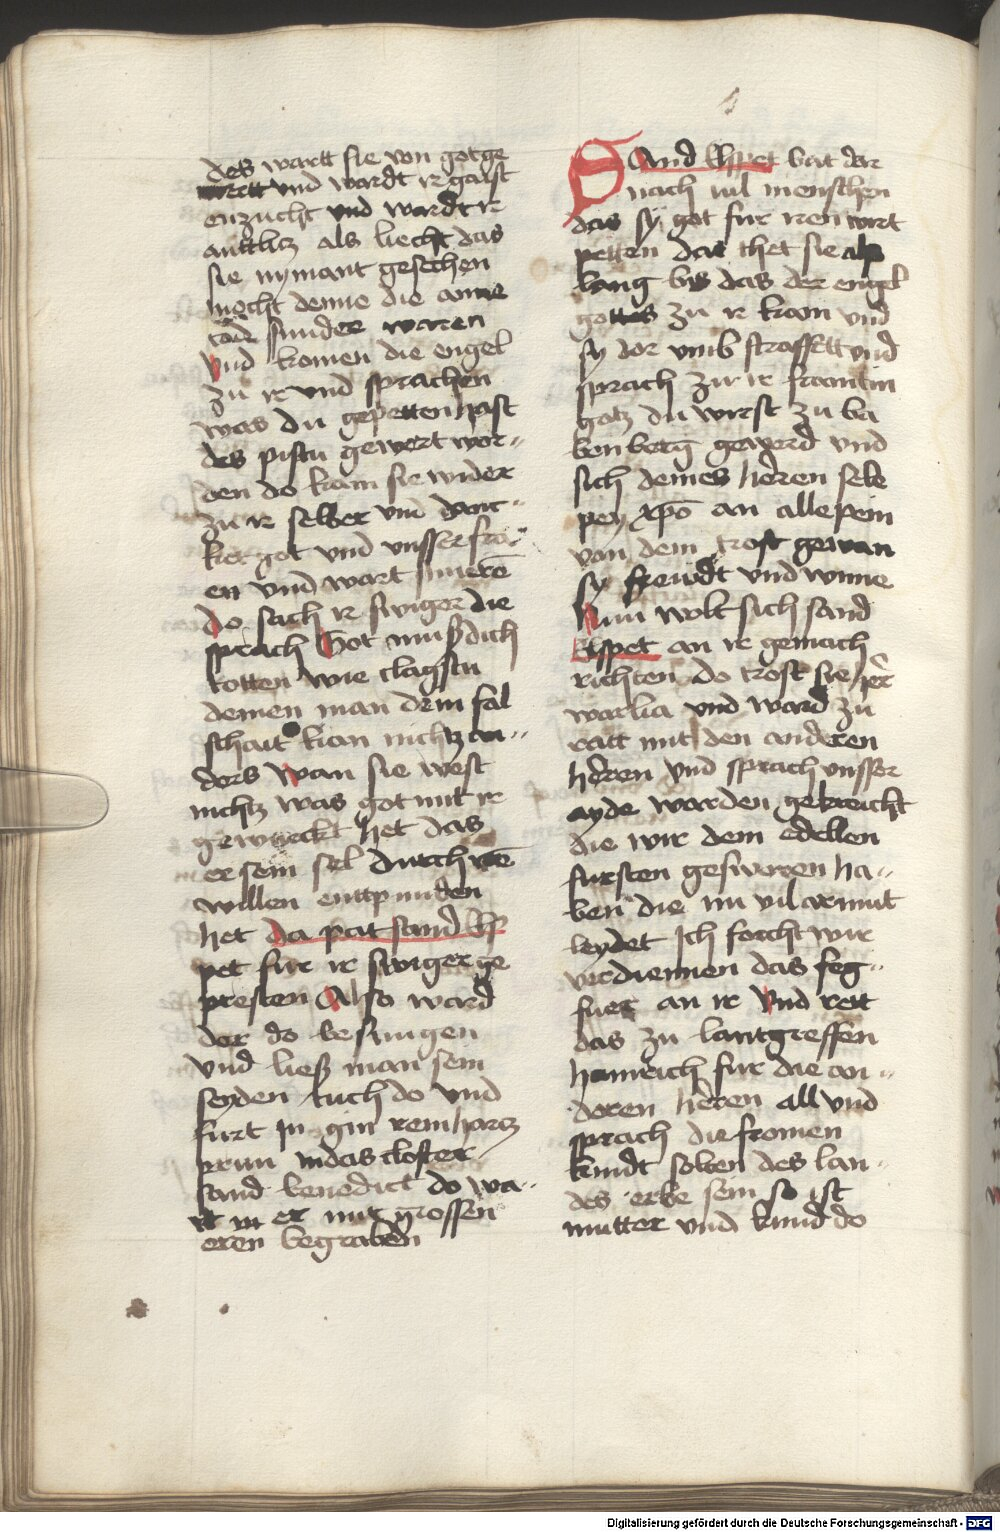 des wartt sie von got ge
wertt vnd wardt ir gaist
enzucht vnd wardt ir
anttlitz als liecht das
sie nymant gesechen
mocht denne die anne
sunder waren
Vnd komen die engel
zu ir vnd sprachen
was du gepetten hast
des pistu gewert wor-
den do kam sie wider
zu ir selber vnd danc-
ket got vnd vnsser fra-
en vnd wart
do sach ir swiger die
sprach Got muß dich
totten wie clagstu
deinen man dein fal
schait kan nichtz an-
ders Wan sie west
nichtz was got mit ir
gewurckt het das
er sein sel durch iren
willen enttpunden
het da pat sand Els
pet fur ir swiger ge
presten Also ward
der do besungen
vnd ließ man sein
seyden tuch do vnd
furt in gin reinhartz
prun in das closter
sand benedict do wa-
rt in er mit grossen
eren begraben
SAnd Elspet bat dar
nach vil menschen
das sy got fur iren wirt
petten das thet sie als
lang bis das der engel
gottes zu ir kam vnd
sy dor vmb straffett vnd
sprach zu ir frantin
gotz du wirst zu ba
benberg gewerd vnd
sich deines heren sele
pey xpō an alle pein
von dem trost gewan
sy freudt vnd wune
Nun wolt sich sand
Elspet an ir gemach
richten do trost sie her
warlia vnd ward zu
ratt mit den anderen
heren vnd sprach vnsser
ayde warden gekreicht
die wir dem edellen
fursten gesworen ha-
ben die nu vil armut
leydet Ich forcht wir
verdiennen das feg-
fuer an ir Vnd rett
das zu lantgreffen
hainreich fur die an-
deren heren all vnd
sprach die fromen
kindt solten des lan-
des erbe sein so ist
mutter vnd kind do
Digitalisierung gefördert durch die Deutsche Forschungsgemeinschaft - DFG